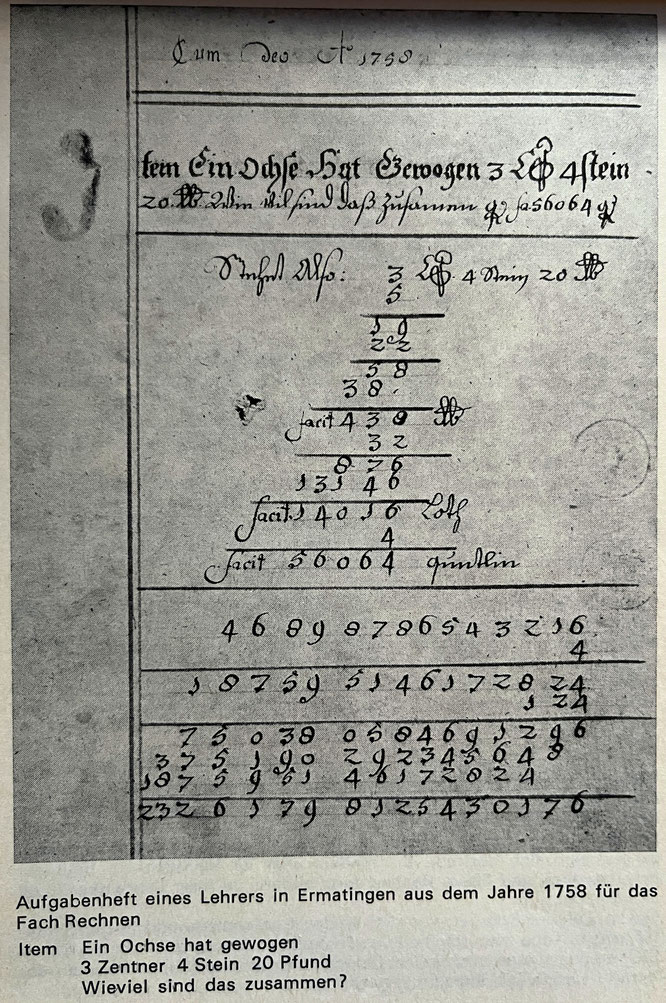 Cum Deo Aº 1758
Item Ein Ochse Hat Gewogen 3 C℔ 4 stein
20 ℔ Wie vil sind daß Zusamen q fa 56064 q
Stehet Also: 3 C℔ 4 Stein 20 ℔
5
19
22
58
38
facit 438 ℔
32
876
13146
facit 14016 Loth
4
facit 56064 quintlin
4 6 8 9 8 7 8 6 5 4 3 2 1 6
4
1 8 7 5 9 5 1 4 6 1 7 2 8 2 4
1 2 4
7 5 0 3 8 0 5 8 4 6 9 1 2 9 6
3 7 5 1 9 0 2 9 2 3 4 5 6 4 8
1 8 7 5 9 5 1 4 6 1 7 2 8 2 4
2 3 2 6 1 7 9 8 1 2 5 4 3 0 1 7 6
Aufgabenheft eines Lehrers in Ermatingen aus dem Jahre 1758 für das
Fach Rechnen
Item Ein Ochse hat gewogen
3 Zentner 4 Stein 20 Pfund
Wieviel sind das zusammen?